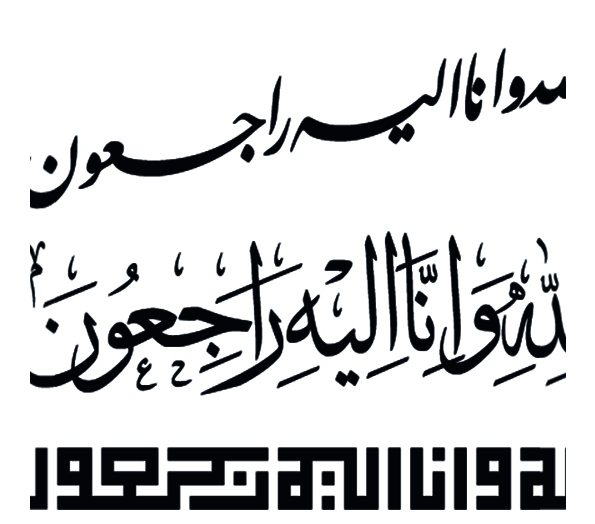 وانا اليه راجعون
لِلّهِ وَاِنَّا اِلَيهِ رَاجِعُونَ
له وانا اليه راجعو